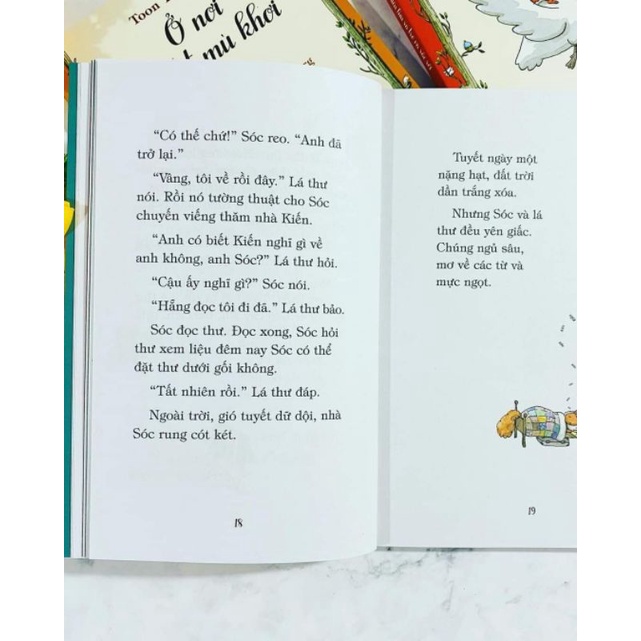 Toon
Ở nơi
mù khơi
“Có thể chứ!” Sóc reo. “Anh đã
trở lại.”
“Vâng, tôi về rồi đây.” Lá thư
nói. Rồi nó tường thuật cho Sóc
chuyến viếng thăm nhà Kiến.
“Anh có biết Kiến nghĩ gì về
anh không, anh Sóc?” Lá thư hỏi.
“Cậu ấy nghĩ gì?” Sóc nói.
“Hẵng đọc tôi đi đã.” Lá thư bảo.
Sóc đọc thư. Đọc xong, Sóc hỏi
thư xem liệu đêm nay Sóc có thể
đặt thư dưới gối không.
“Tất nhiên rồi.” Lá thư đáp.
Ngoài trời, gió tuyết dữ dội, nhà
Sóc rung cót két.
18
Tuyết ngày một
nặng hạt, đất trời
dần trắng xóa.
Nhưng Sóc và lá
thư đều yên giấc.
Chúng ngủ sâu,
mơ về các từ và
mực ngọt.
19